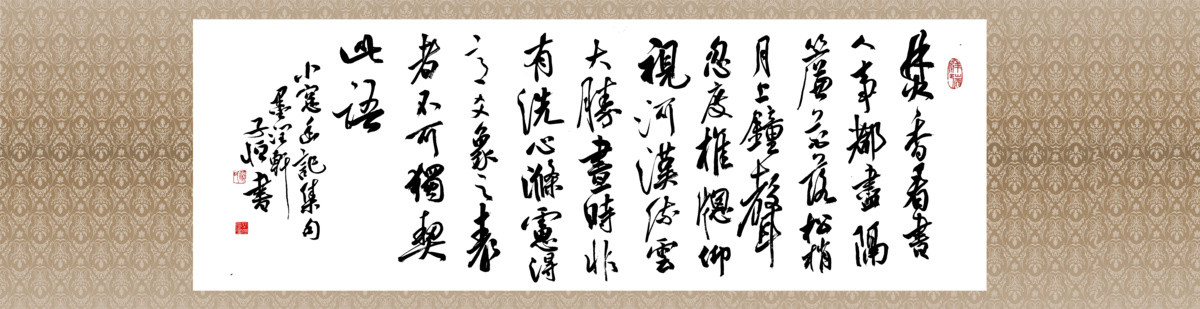 焚香看書
人事都盡隔
簾花落松梢
月上鐘聲
忽度推牕仰
視河漢流雲
大勝晝時非
有洗心滌慮得
意爻象之表
者不可獨契
此語
小窓幽記集句
墨潤軒
子恒書